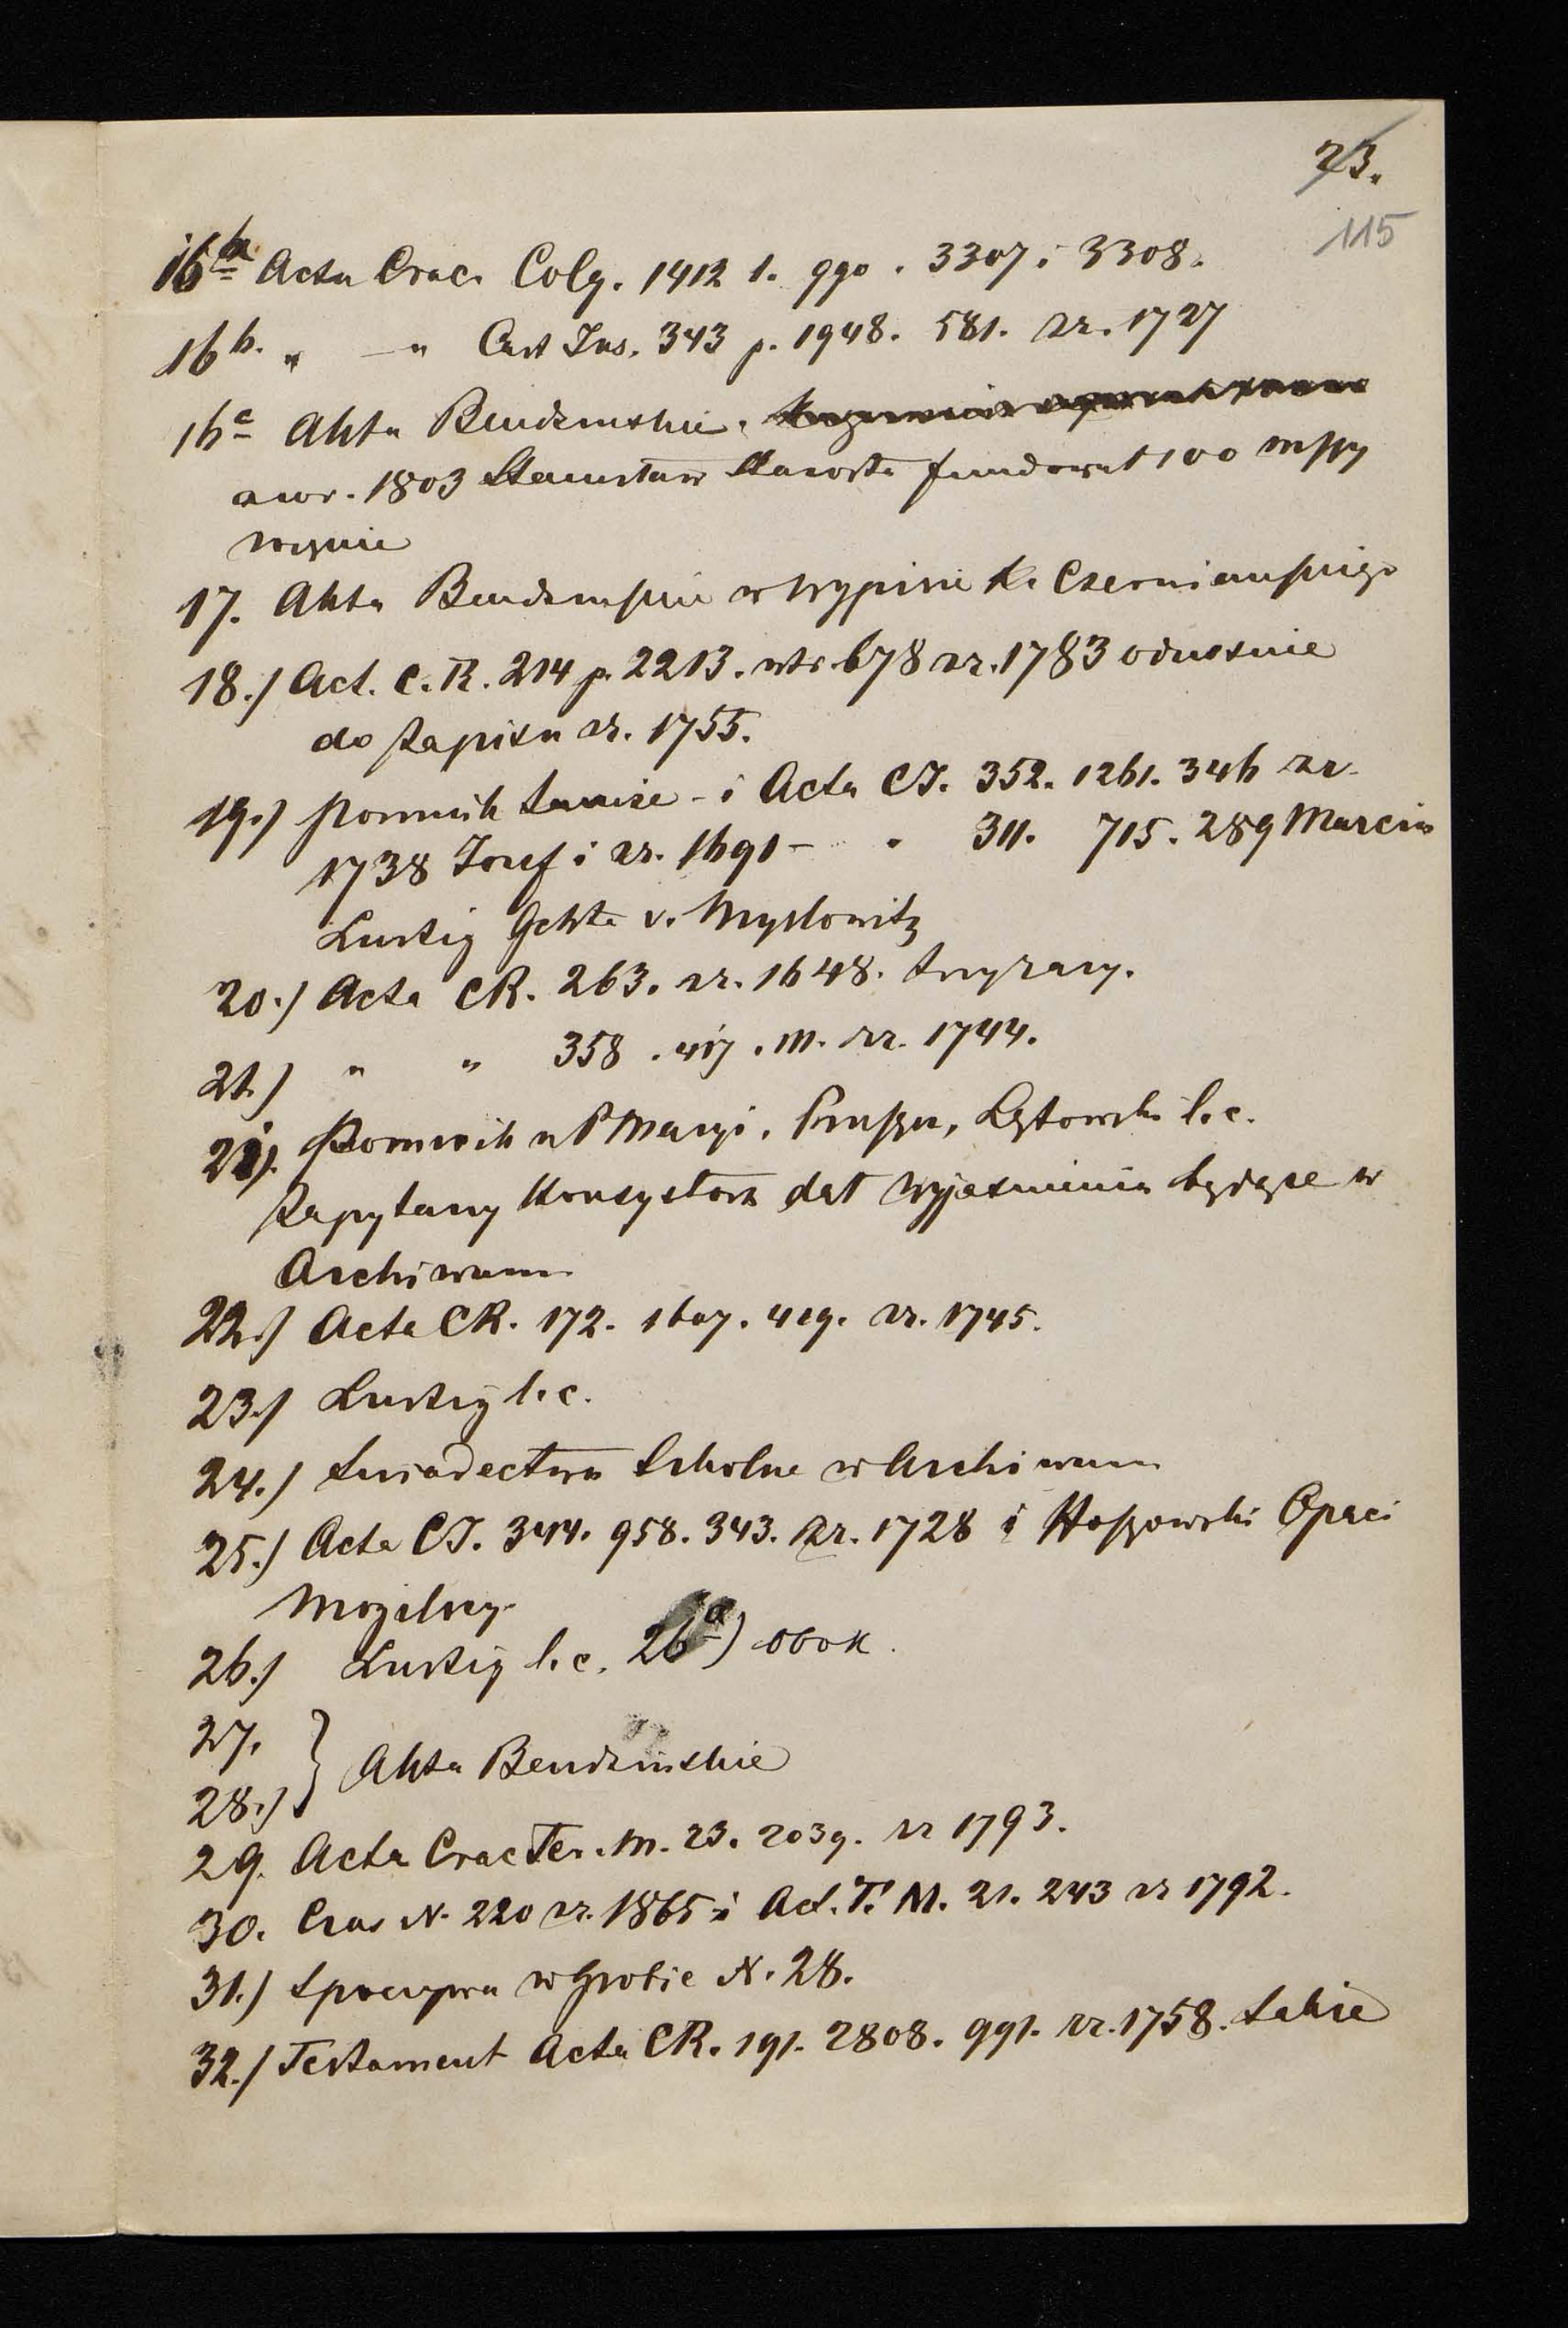 23.
115
16a Acta Crac. Colg. 1412 1. 990. 3307 i 3308.
16b. " — " Cast Ins. 343 p. 1948. 581. zr. 1727
16c Akta Bendzinskie.
a wr. 1803 Stanisław fundował 100 mszy
wizynie
17. Akta Bendzinskie w wypisie Ks Czerniauskiego
18.) Act. C. R. 214 p. 2213. str. 678 zr. 1783 odnośnie
do zapisu zr. 1755.
19.) pomnik tamże - i Acta CJ. 352. 1261. 346 zr.
1738 Josef i zr. 1691 - " 311. 715. 289 Marcin
Lustig Gchte v. Myslowitz
20.) Acta CR. 263. zr. 1648.
21.) " " 358. 417. 111. zr. 1744.
21). Pomnik u P Maryi. Pruszcz, Łętowski l. c.
Zapytany Konsystorz dał wyjasnienia będące w
Archiwum
22.) Acta CR. 172. 1607. 419. zr. 1745.
23.) Lustig l. c.
24.) Swiadectwa Szkolne w Archiwum
25.) Acta CJ. 344. 958. 343. zr. 1728 i Hoszowski Opaci
Mogilscy.
26.) Lustig l. c. 26a) obok.
27.
28.) } Akta Bendzinskie
29. Acta Crac Ter. M. 23. 2039. zr 1793.
30. Czas N. 220 zr. 1865 i Act. T. M. 21. 243 zr 1792.
31.) Spoczywa w Grobie N. 28.
32.) Testament Acta CR. 191. 2808. 991. zr. 1758. takie